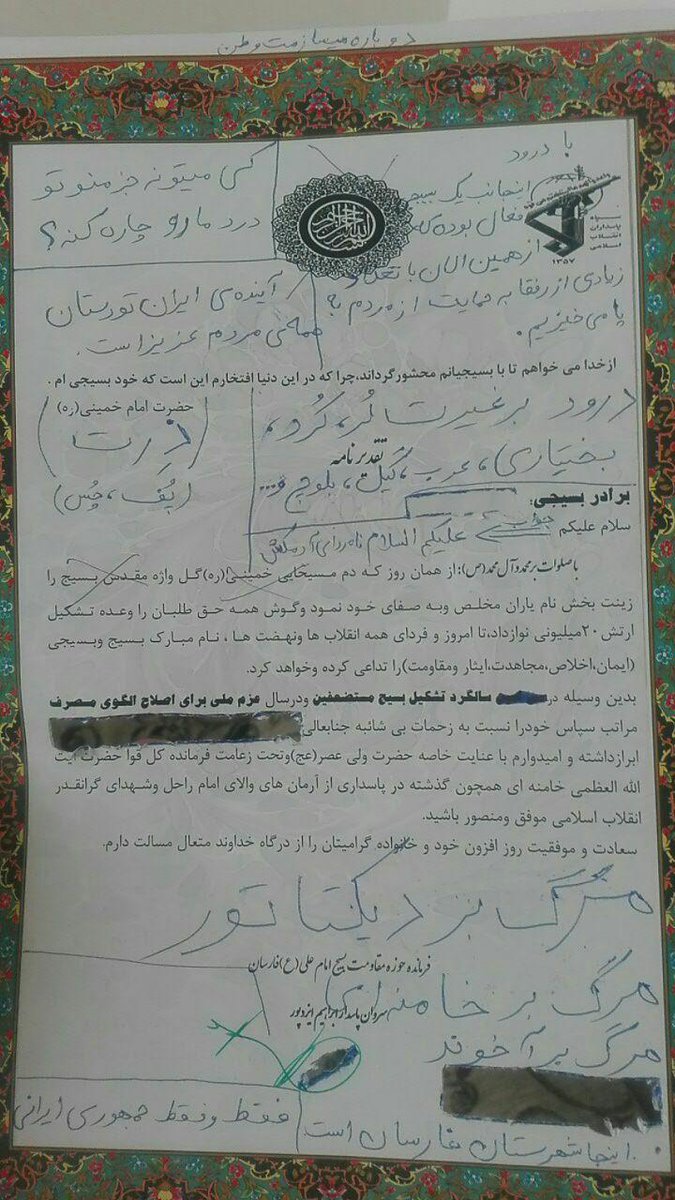 دوباره میسازمت وطن
با درود
اینجانب یک بسیجی
فعال بوده که
از همین الان با تعداد
زیادی از رفقا به حمایت از مردم به
پا می خیزیم.
کسی میتونه جز منو تو
درد مارو چاره کنه؟
سپاه
پاسداران
انقلاب
اسلامی
۱۳۵۷
آینده‌ی ایران تو دستان
همه‌ی مردم عزیز است.
ازخدا می خواهم تا با بسیجیانم محشورگرداند،چرا که در این دنیا افتخارم این است که خود بسیجی ام .
حضرت امام خمینی(ره)
درود بر غیرت لُر، کُرد،
بختیاری، عرب، گیل، بلوچ و...
(پُف، چُس)
تقدیرنامه
برادر بسیجی:
سلام علیکم
جواب علیکم السلام نامردای آدمکش
باصلوات برمحمد وآل محمد(ص):از همان روز که دم مسیحایی خمینی(ره)گل واژه مقدس بسیج را
زینت بخش نام یاران مخلص وبه صفای خود نمود وگوش همه حق طلبان را وعده تشکیل
ارتش۲۰میلیونی نوازداد،تا امروز و فردای همه انقلاب ها ونهضت ها ، نام مبارک بسیج وبسیجی
(ایمان،اخلاص،مجاهدت،ایثار ومقاومت)را تداعی کرده وخواهد کرد.
بدین وسیله در سالگرد تشکیل بسیج مستضعفین ودرسال عزم ملی برای اصلاح الگوی مصرف
مراتب سپاس خودرا نسبت به زحمات بی شائبه جنابعالی
ابرازداشته و امیدوارم با عنایت خاصه حضرت ولی عصر(عج)وتحت زعامت فرمانده کل قوا حضرت آیت
الله العظمی خامنه ای همچون گذشته در پاسداری از آرمان های والای امام راحل وشهدای گرانقدر
انقلاب اسلامی موفق ومنصور باشید.
سعادت و موفقیت روز افزون خود و خانواده گرامیتان را از درگاه خداوند متعال مسالت دارم.
مرگ بر دیکتاتور
فرمانده حوزه مقاومت بسیج امام علی(ع)فارسان
مرگ بر خامنه ای
سروان پاسدار ابراهیم ایزدپور
مرگ بر آخوند
فقط وفقط جمهوری ایرانی
اینجا شهرستان فارسان است